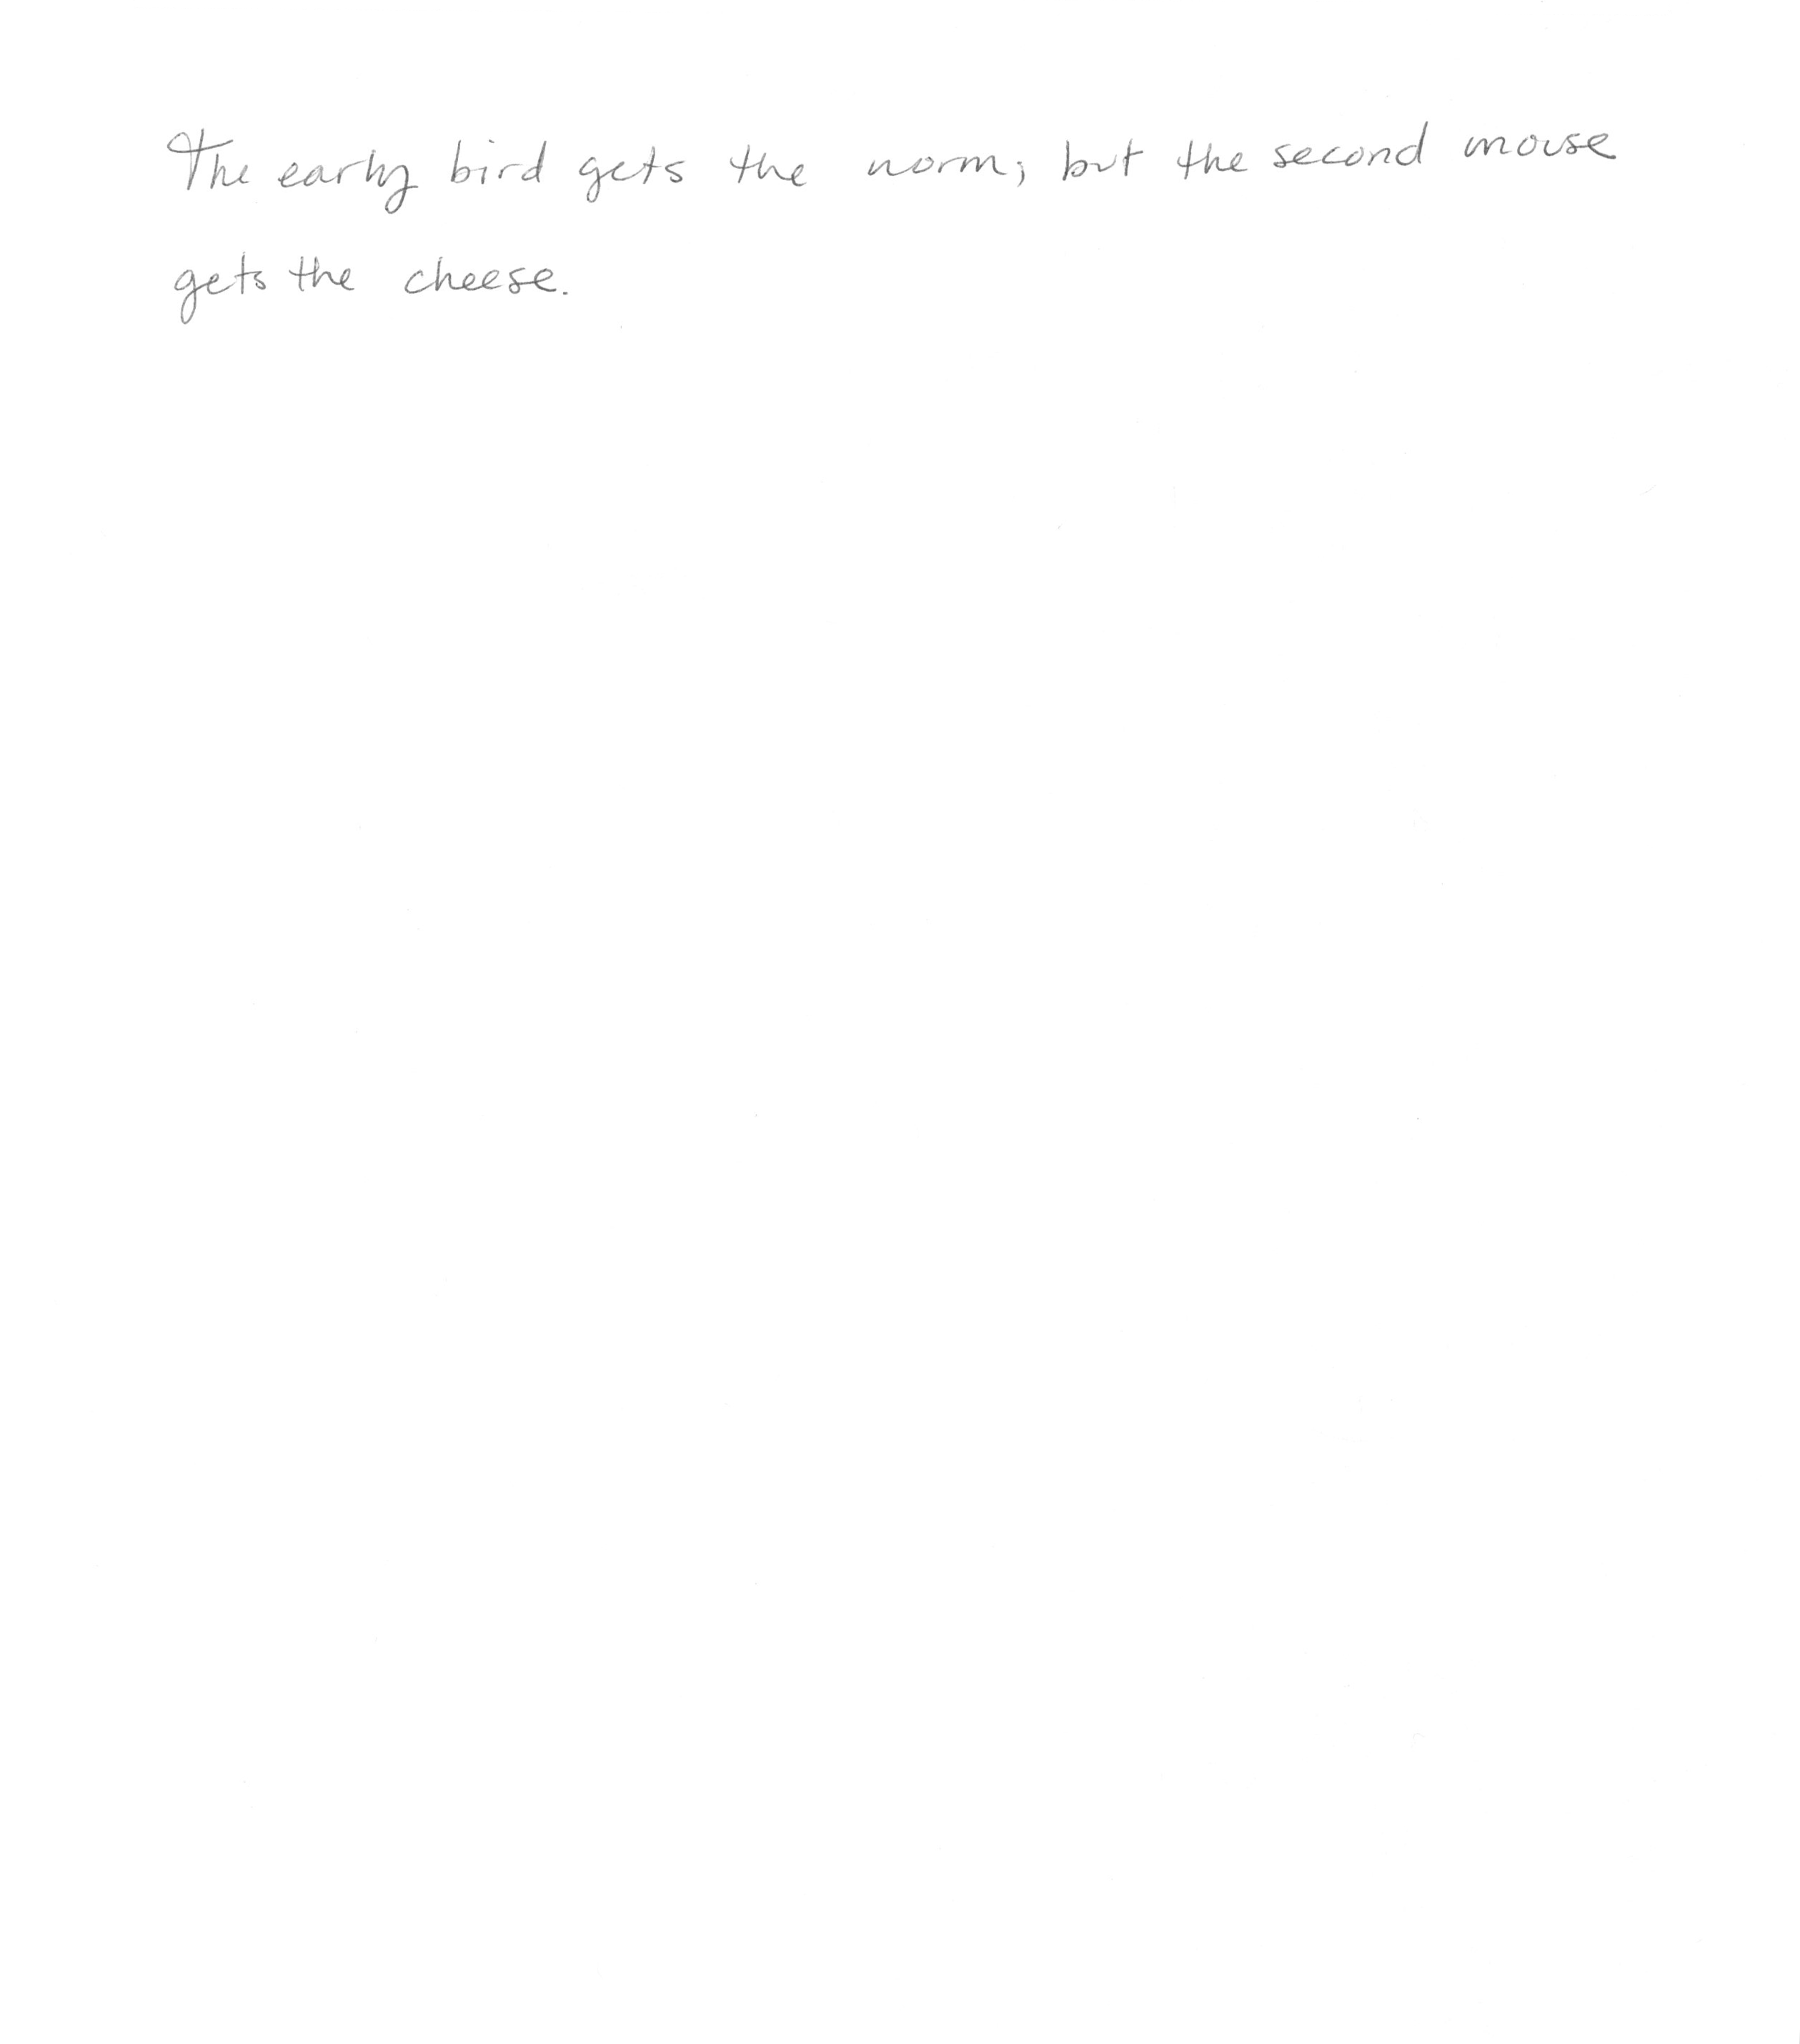 The early bird gets the worm; but the second mouse
gets the cheese.